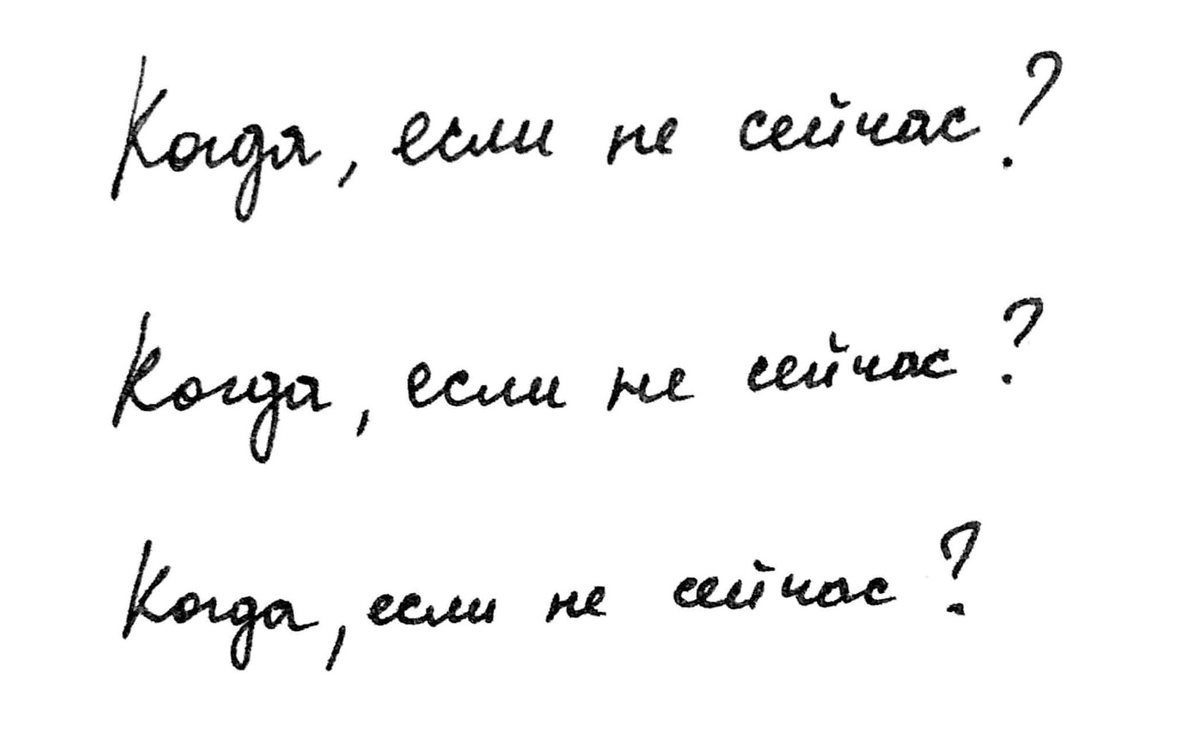 Когда, если не сейчас?
Когда, если не сейчас?
Когда, если не сейчас?